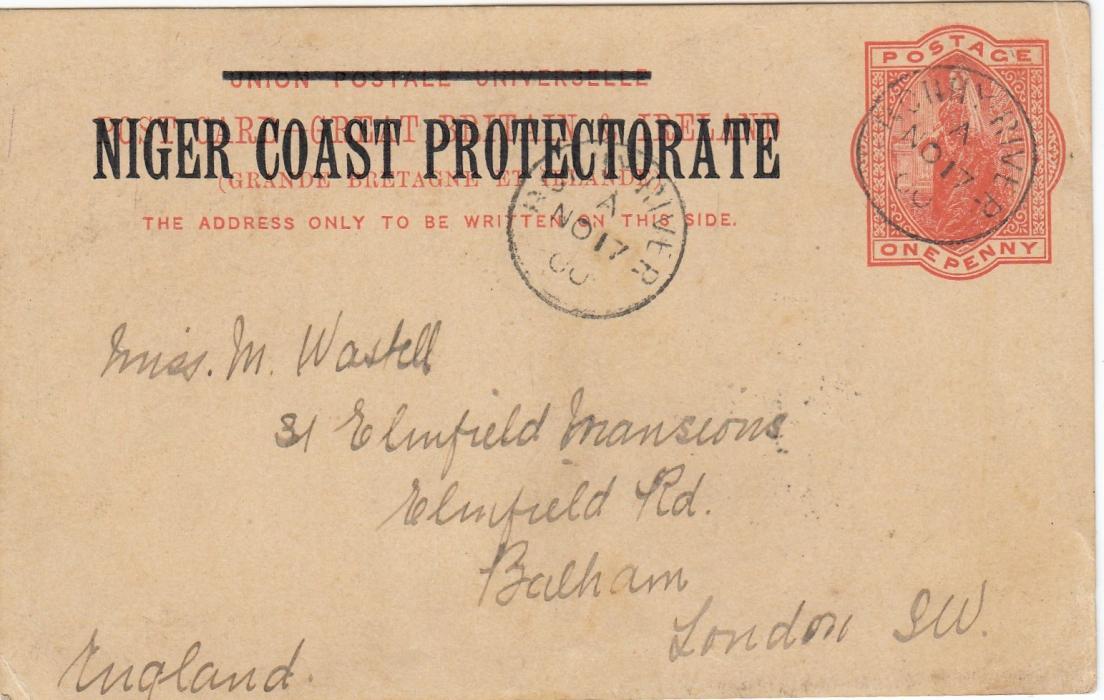 UNION POSTALE UNIVERSELLE
POST CARD GREAT BRITAIN & IRELAND
NIGER COAST PROTECTORATE
(GRANDE BRETAGNE ET IRLANDE)
THE ADDRESS ONLY TO BE WRITTEN ON THIS SIDE.
POSTAGE
ONE PENNY
RIVER
A
NO 17
00
RIVER
A
NO 17
00
Miss. M. Wastell
31 Elmfield Mansions
Elmfield Rd.
Balham
London SW.
England.